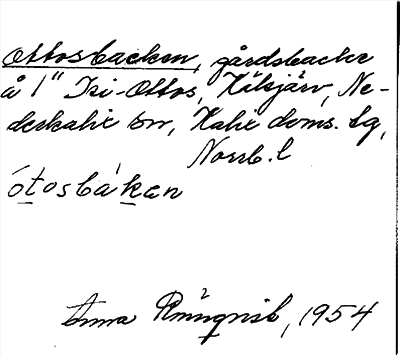 Ottosbacken, gårdsbacke
å 1" Isi-Ottos, Kälsjärv, Ne-
derkalix sn, Kalix doms. lg,
Norrb. l
ótosbàkan
Anna 1954